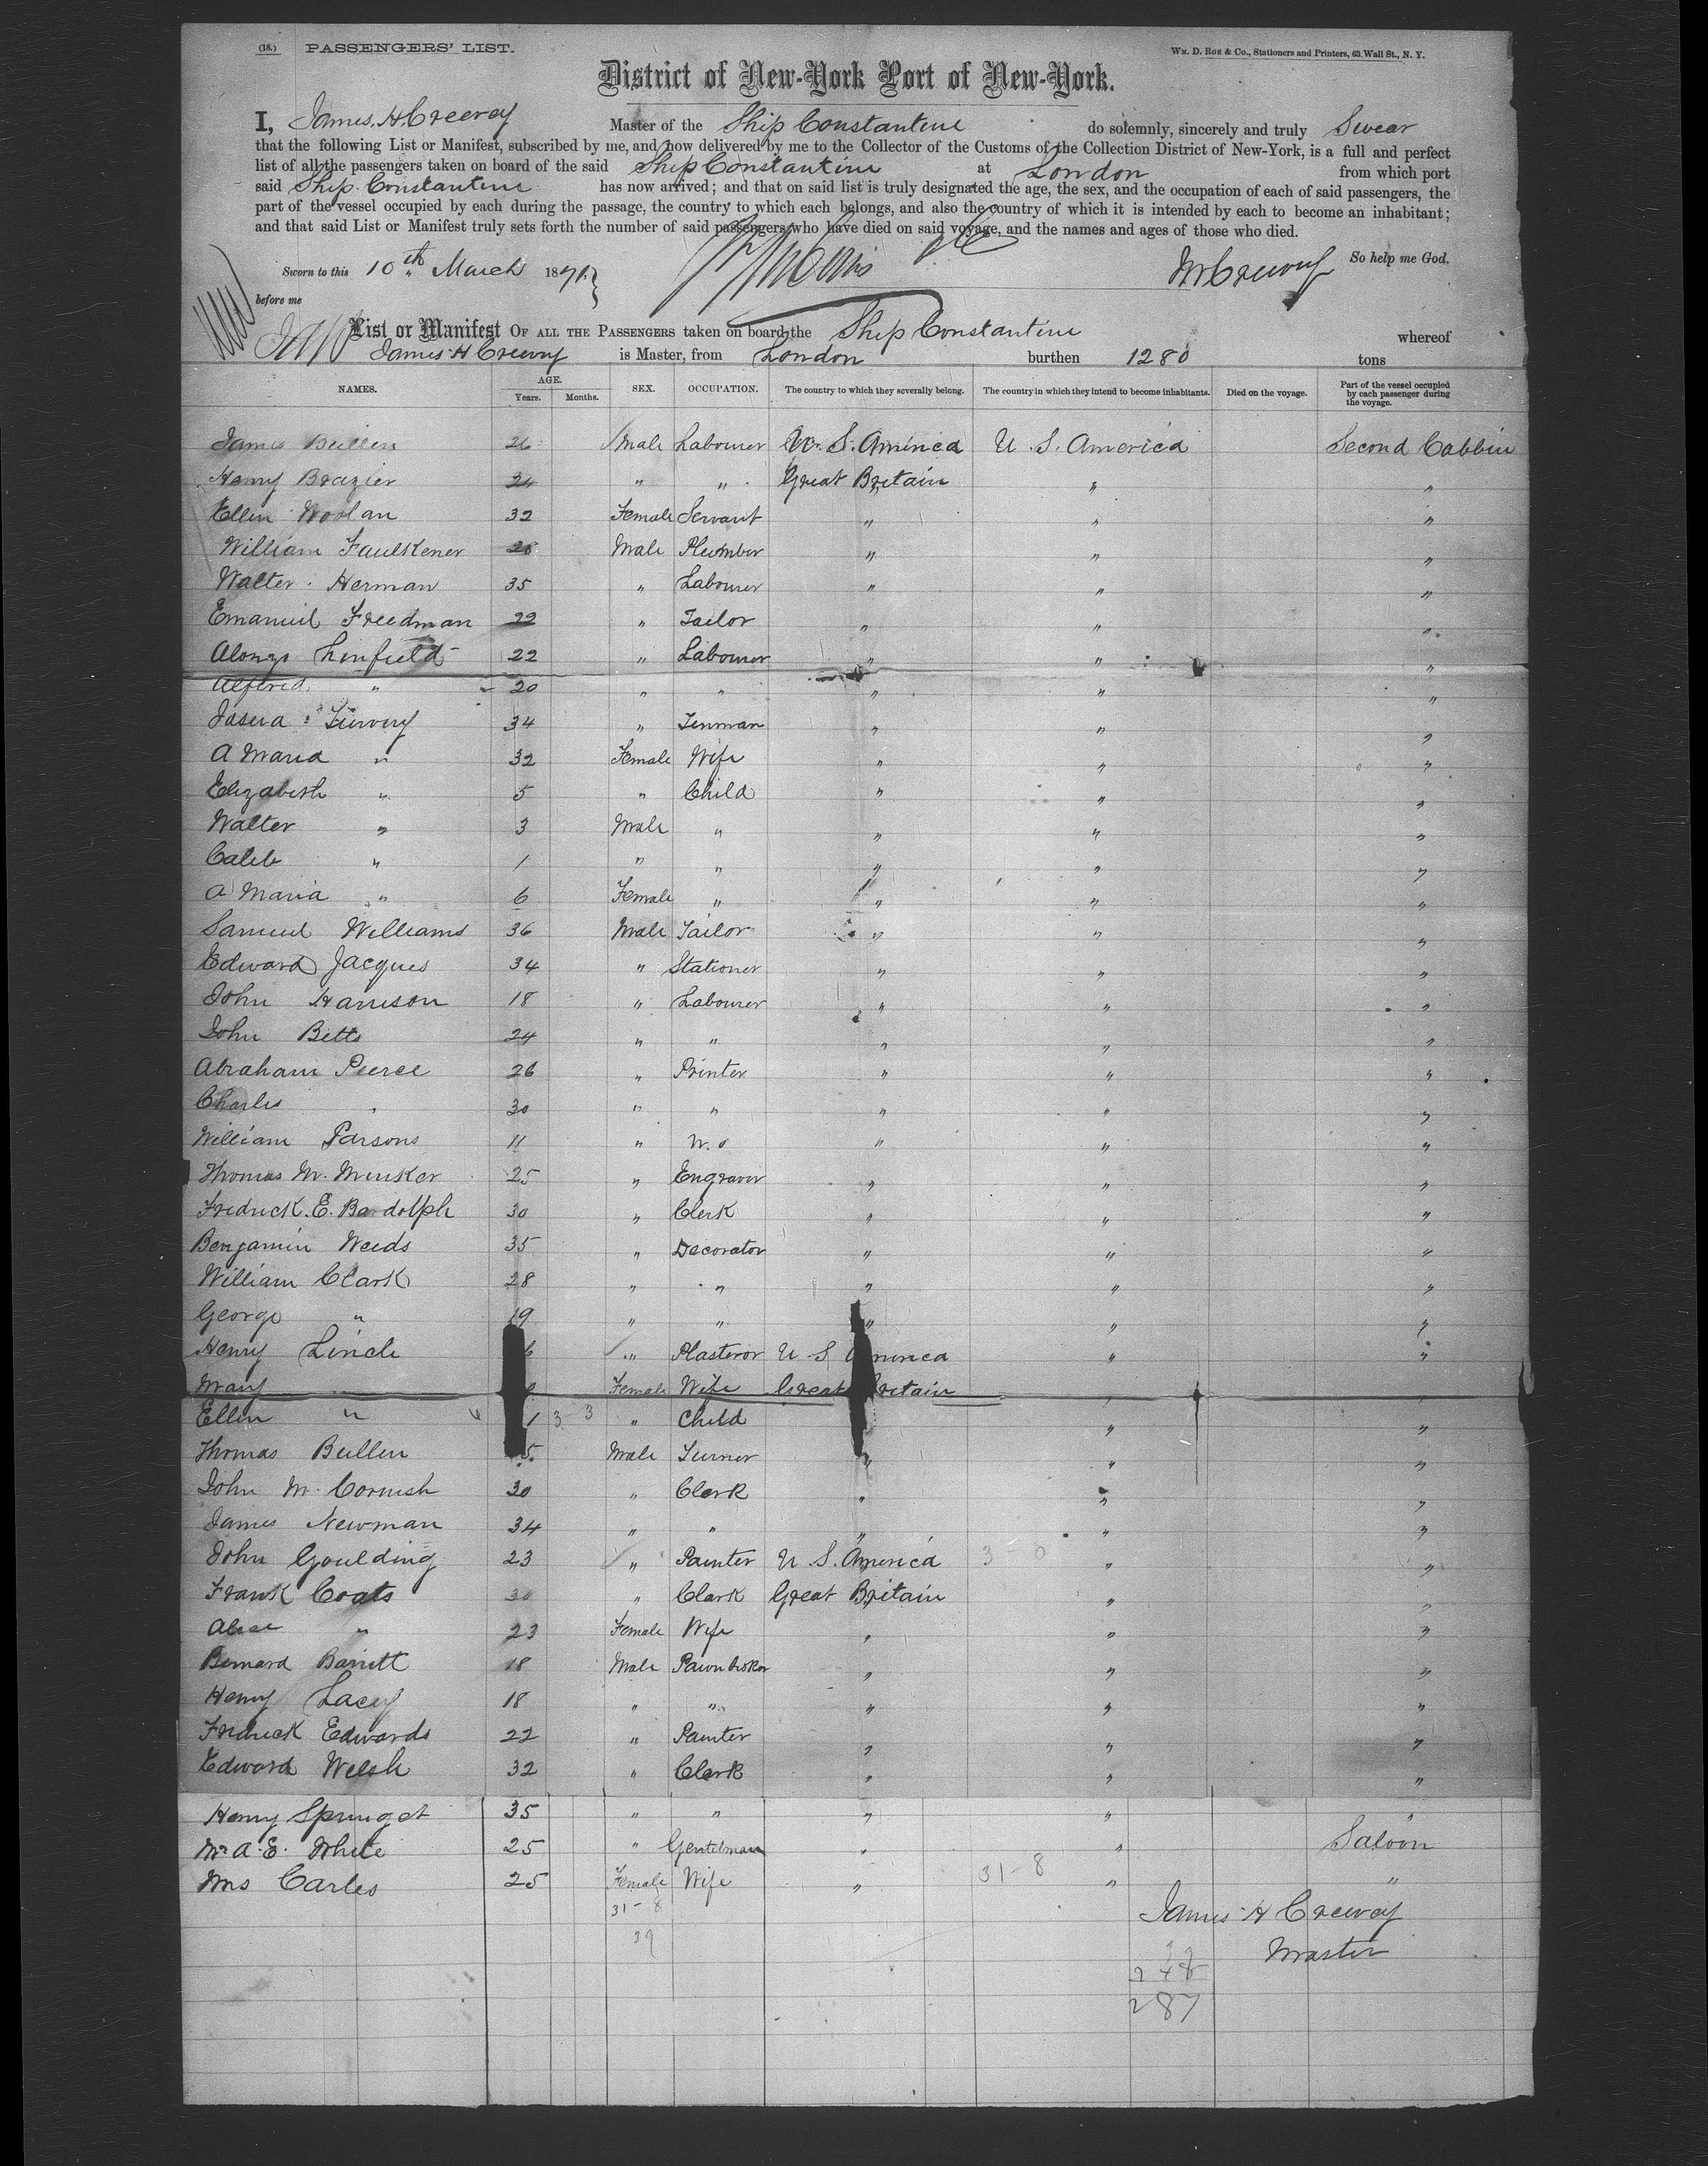 (18.) PASSENGERS' LIST.
WM. D. ROE & Co., Stationers and Printers, 63 Wall St., N. Y.
District of New-York Port of New-York.
I, James. H Creevey Master of the Ship Constantine do solemnly, sincerely and truly Swear
that the following List or Manifest, subscribed by me, and now delivered by me to the Collector of the Customs of the Collection District of New-York, is a full and perfect
list of all the passengers taken on board of the said Ship Constantine at London from which port
said Ship Constantine has now arrived; and that on said list is truly designated the age, the sex, and the occupation of each of said passengers, the
part of the vessel occupied by each during the passage, the country to which each belongs, and also the country of which it is intended by each to become an inhabitant;
and that said List or Manifest truly sets forth the number of said passengers who have died on said voyage, and the names and ages of those who died.
Sworn to this 10th March 1871 So help me God.
before me
List or Manifest OF ALL THE PASSENGERS taken on board the Ship Constantine whereof
James H Creevey is Master, from London burthen 1280 tons
NAMES. AGE. Years. Months. SEX. OCCUPATION. The country to which they severally belong. The country in which they intend to become inhabitants. Died on the voyage. Part of the vessel occupied by each passenger during the voyage.
James Bullen 26 Male Labourer U. S. America U. S. America Second Cabbin
Henry Brazier 24 " " Great Britain " "
Ellen Woolan 32 Female Servant " " "
William Faulkener 28 Male Plumber " " "
Walter Herman 35 " Labourer " " "
Emanuel Freedman 22 " Tailor " " "
Alonzo Linfield 22 " Labourer " " "
Alfred " 20 " " " " "
34 " Tinman " " "
A Maria " 32 Female Wife " " "
Elizabeth " 5 " Child " " "
Walter " 3 Male " " " "
Caleb " 1 " " " " "
A Maria " 6 Female " " " "
Samuel Williams 36 Male Tailor " " "
Edward Jacques 34 " Stationer " " "
John Harrison 18 " Labourer " " "
John Betts 24 " " " " "
Abraham Pierce 26 " Printer " " "
Charles " 30 " " " " "
William Parsons 11 " " " "
Thomas M. Minsker 25 " Engraver " " "
Fredrick. E. Bardolph 30 " Clerk " " "
Benjamin Weeds 35 " Decorator " " "
William Clark 28 " " " " "
George " 19 " " " " "
Henry Linch 6 " Plasteror U S America " "
Mary Female Wife Great Britain " "
Ellen " 1 3 3 " Child " "
Thomas Bullen 5 Male Turner " " "
John M. Cornish 30 " Clark " " "
James Newman 34 " " " " "
John Goulding 23 " Painter U. S. America 3 8 " "
Frank Coats 30 " Clark Great Britain " "
Alice " 23 Female Wife " " "
Bernard Barrett 18 Male Pawnbroker " " "
Henry Lacey 18 " " " " "
Fredrick Edwards 22 " Painter " " "
Edward Welsh 32 " Clark " " "
Henry Springet 35 " " " " "
Mr A. E. White 25 " Gentelman " " Saloon
Mrs Carles 25 Female Wife " 31-8 " "
31-8
39
James H Creevey
Master
39
248
287